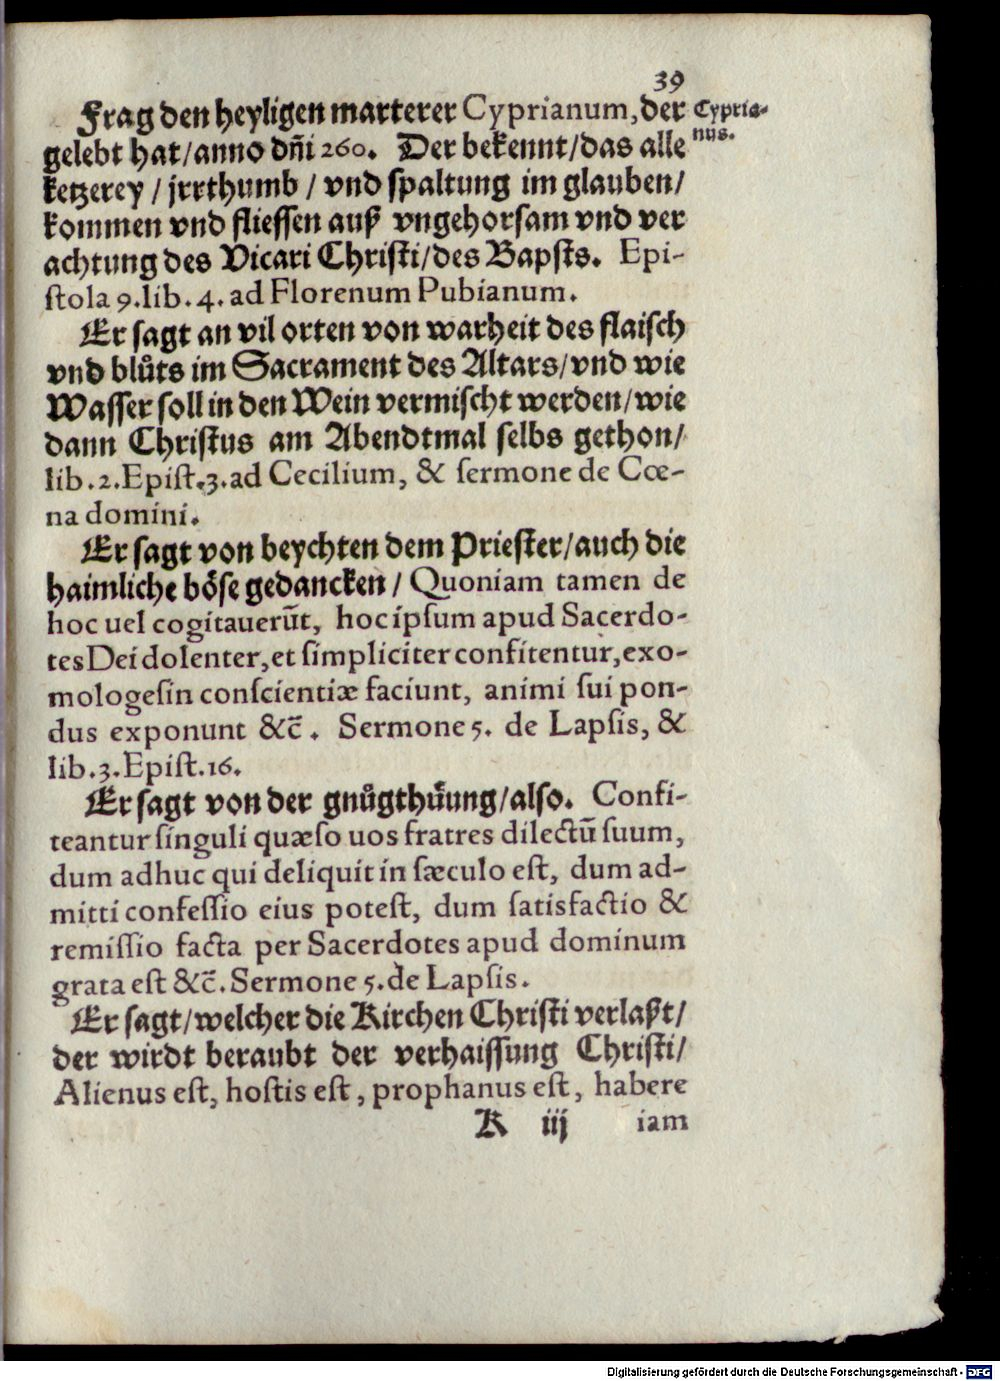 39
Frag den heyligen marterer Cyprianum, der
Cypria-
nus.
gelebt hat/anno dñi 260. Der bekennt/das alle
ketzerey / jrrthumb / vnd spaltung im glauben/
kommen vnd fliessen auß vngehorsam vnd ver
achtung des Vicari Christi/des Bapsts. Epi-
ſtola 9.lib. 4. ad Florenum Pubianum.
Er sagt an vil orten von warheit des flaisch
vnd blůts im Sacrament des Altars/vnd wie
Wasser soll in den Wein vermischt werden/wie
dann Christus am Abendtmal selbs gethon/
lib.2.Epiſt.3.ad Cecilium, & ſermone de Cœ-
na domini.
Er sagt von beychten dem Priester/auch die
haimliche böse gedancken / Quoniam tamen de
hoc uel cogitauerũt, hoc ipſum apud Sacerdo-
tes Dei dolenter, et ſimpliciter confitentur, exo-
mologeſin conſcientiæ faciunt, animi ſui pon-
dus exponunt &c̃. Sermone 5. de Lapſis, &
lib.3.Epiſt.16.
Er sagt von der gnůgthůung/also. Confi-
teantur ſinguli quæſo uos fratres dilectũ ſuum,
dum adhuc qui deliquit in ſæculo eſt, dum ad-
mitti confeſſio eius poteſt, dum ſatisfactio &
remiſſio facta per Sacerdotes apud dominum
grata eſt &c̃. Sermone 5. de Lapſis.
Er sagt/welcher die Kirchen Christi verlaßt/
der wirdt beraubt der verhaissung Christi/
Alienus eſt, hoſtis eſt, prophanus eſt, habere
K iij iam
Digitalisierung gefördert durch die Deutsche Forschungsgemeinschaft - DFG